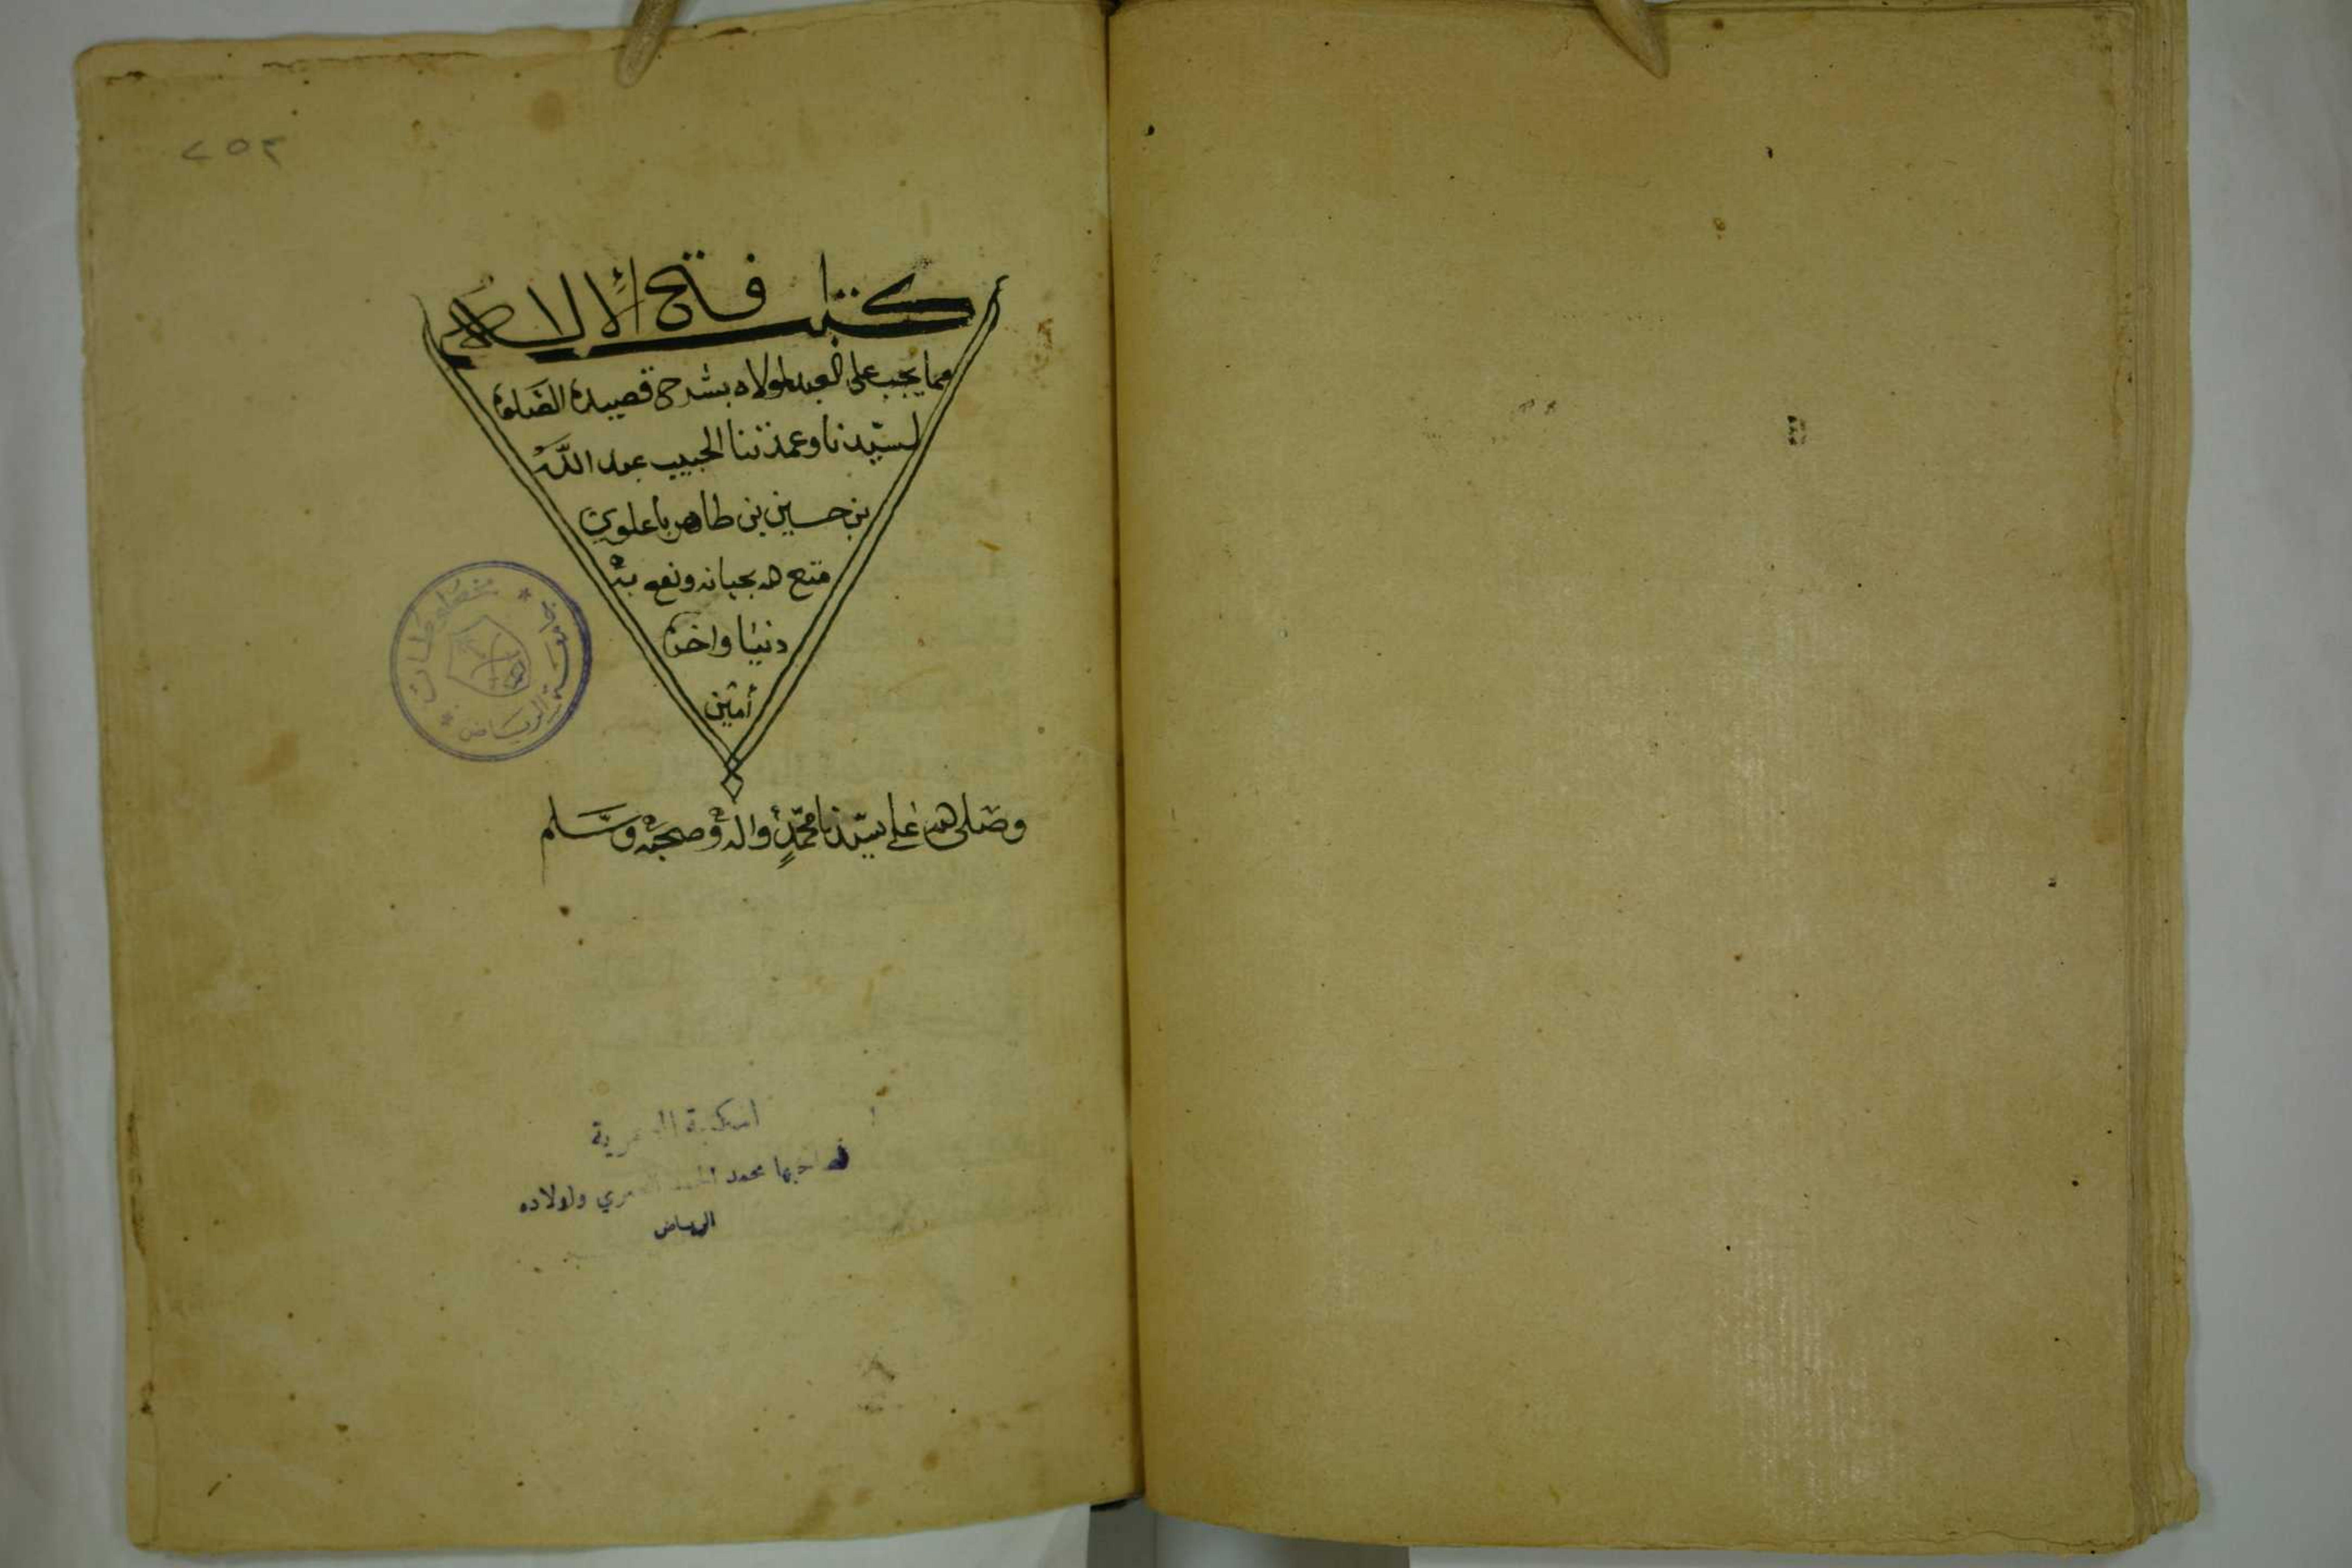 ٢٥٢
كتاب فتح الإلاه
مما يجب على العبد لمولاه بشرح قصيدة الصلوة
لسيّدنا وعمدتنا الحبيب عبد اللّه
بن حسين بن طاهر باعلوي
متع الله بحياته ونفع به
دنيا واخرة
أمين
وصلى الله على سيّدنا محمّدٍ وآله وصحبه وسَّلم
جامعة الرياض
مخطوطات
المكتبة
لصاحبها محمد ولولاده
الرياض